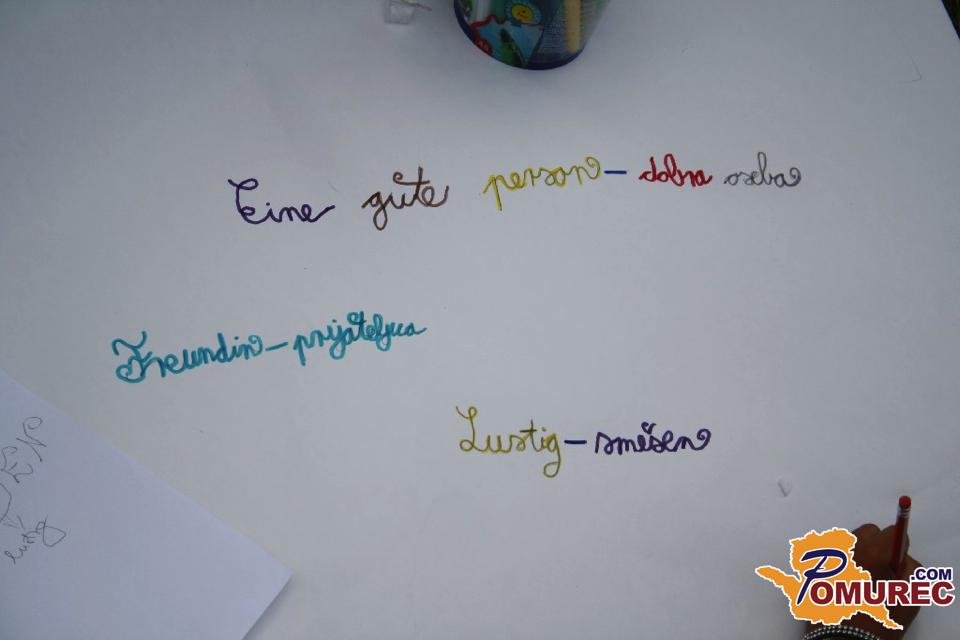 Eine gute person - dobra oseba
Freundin - prijateljica
Lustig - smešen
lustig
POMUREC.COM